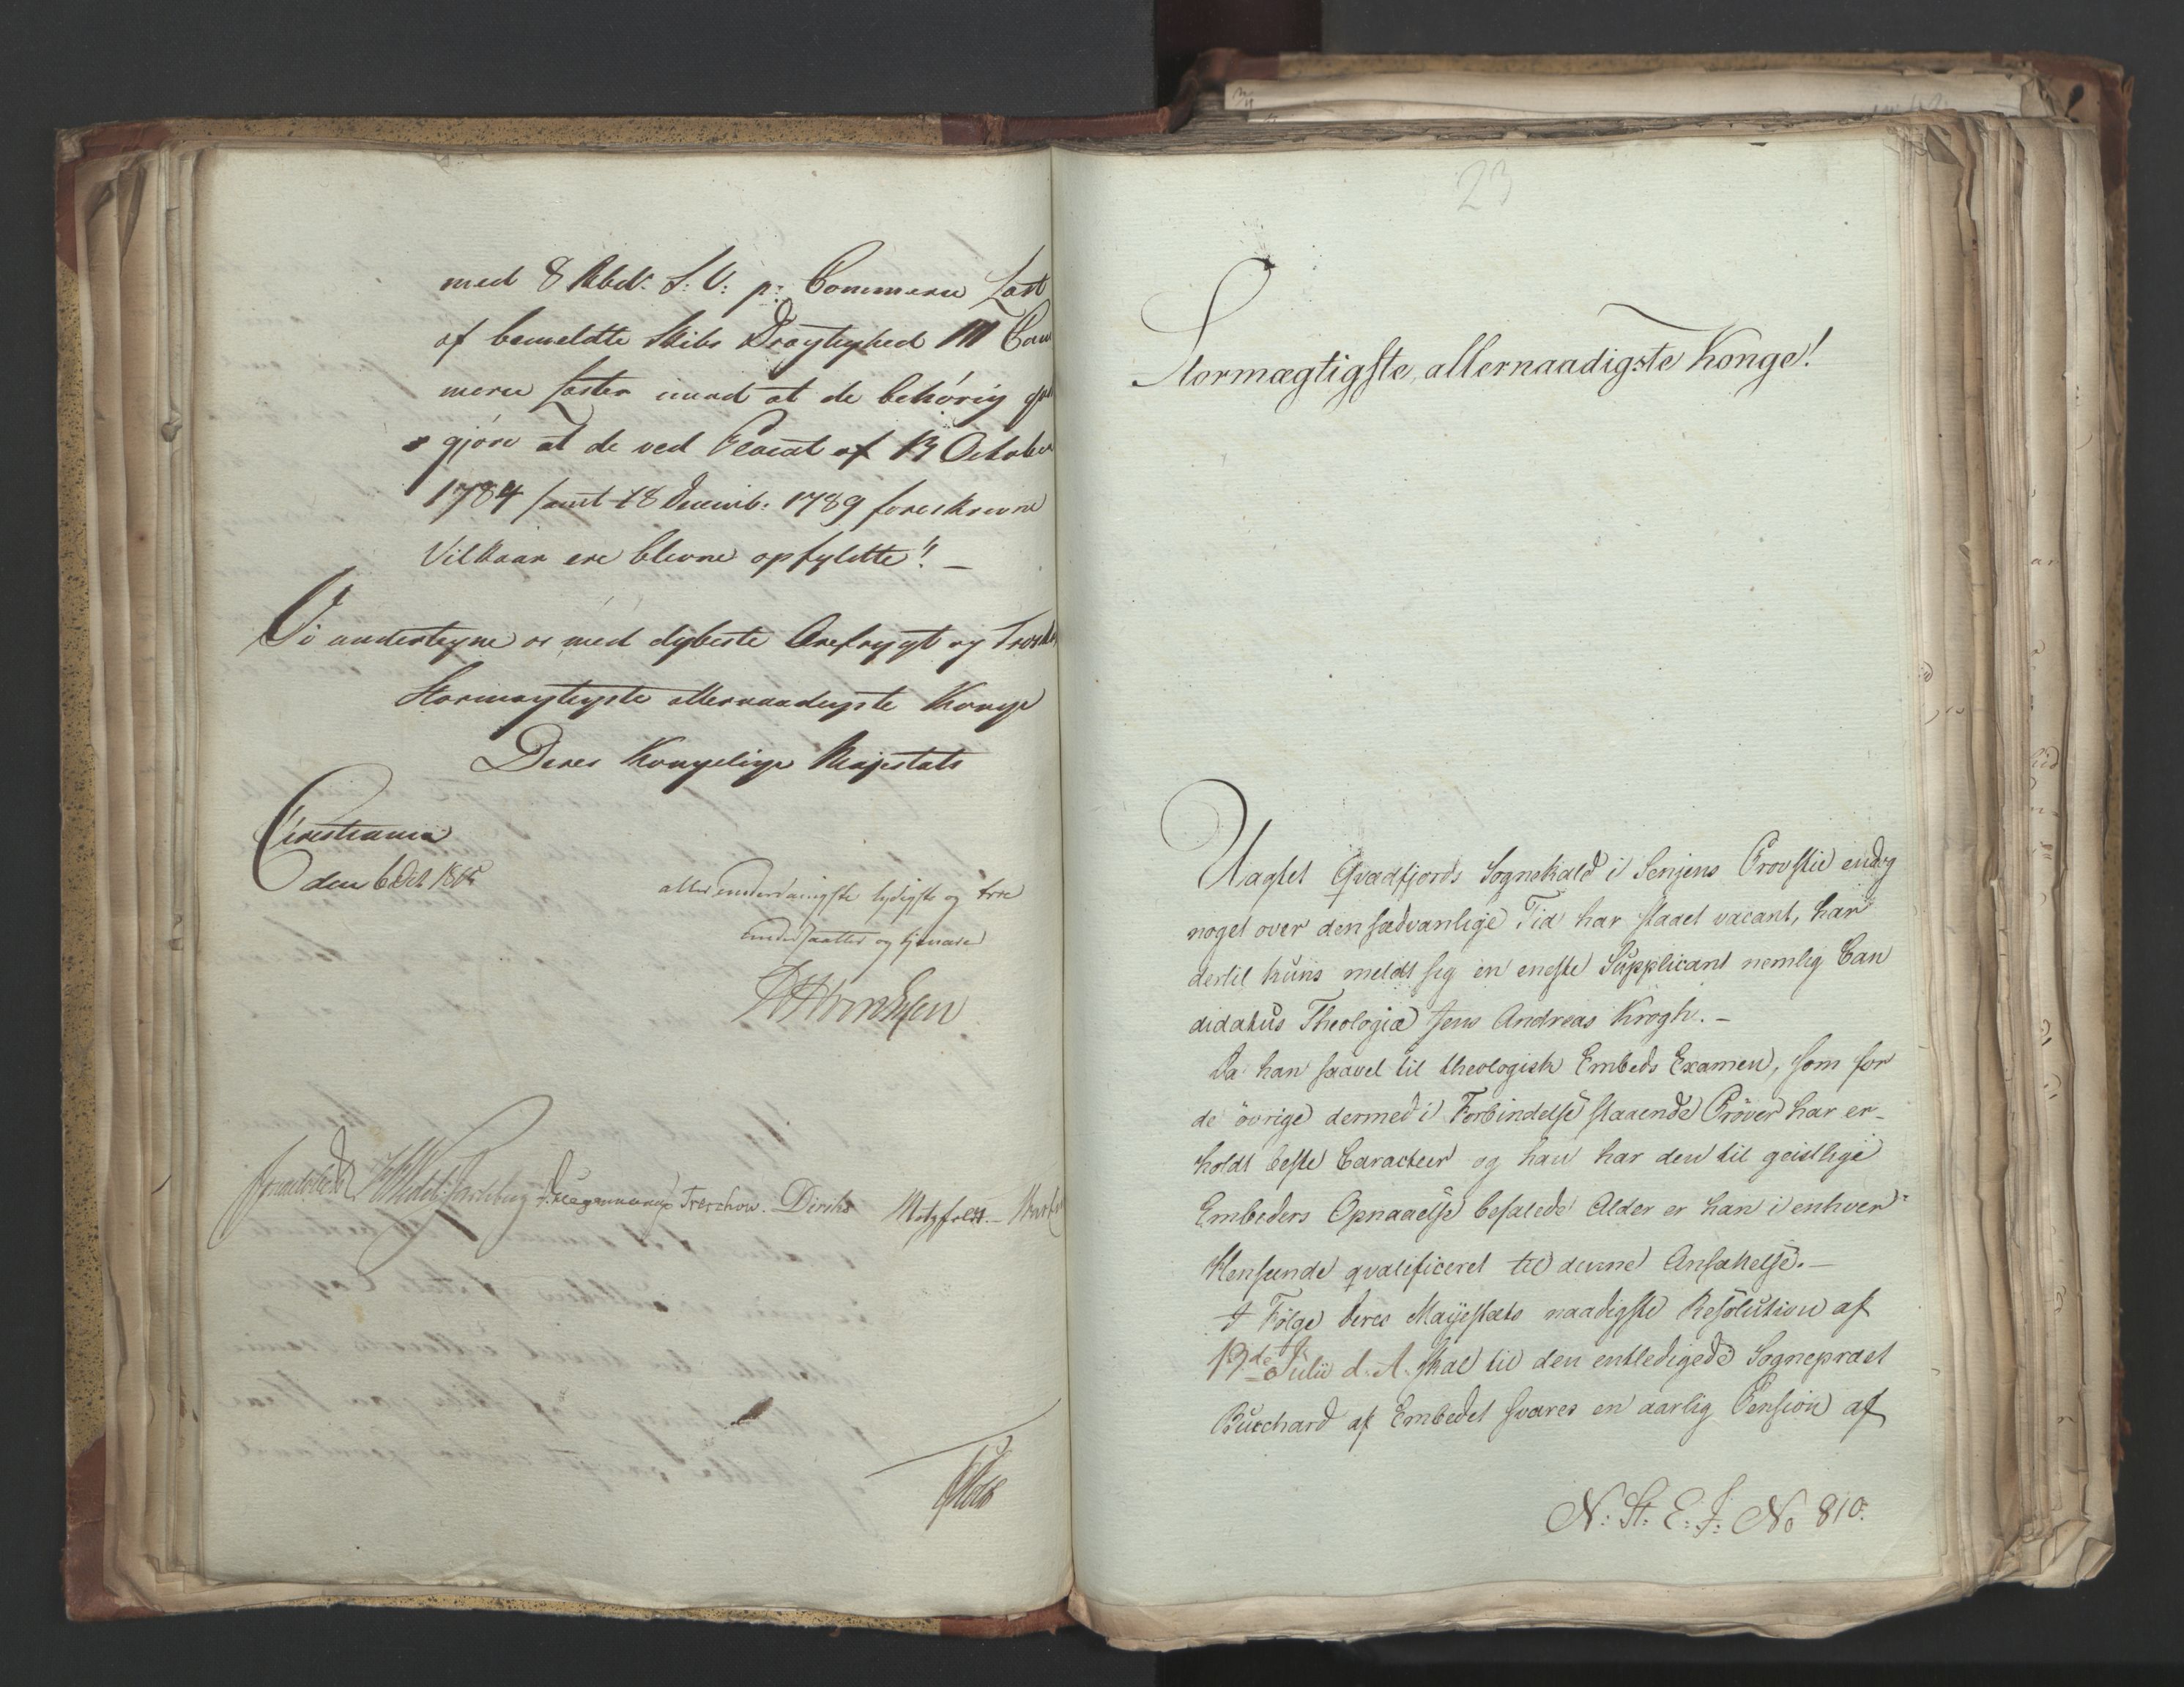 med 8 Rbd. S: V: pr: Commerce Last
af bemeldte Skibs Drægtighed 111 Com
merce Laster imod at de behørig god
gjøre at de ved Placat af 13 October
1784 samt 18 Decemb: 1789 foreskrevne
Vilkaar ere blevne opfyldte". —
Vi undertegne os med dybeste Ærefrygt og Troskab
Stormægtigste allernaadigste Konge
Deres Kongelige Majestæts
Christiania
den 6 Oct 1815
allerunderdanigste lydigste og troe
undersaatter og tjenere
Treschow. Diriks Motzfeldt.
23
Stormægtigste, allernaadigste Konge!
Uagtet Qvædfjords Sognekald i Senjens Provstie endog
noget over den sædvanlige Tid har staaet vacant, har
dertil kuns meldt sig en eneste Supplicant nemlig Can
didatus Theologiæ Jens Andreas Krogh. —
Da han saavel til theologisk Embeds Examen, som for
de øvrige dermed i Forbindelse staaende Prøver har er-
holdt beste Caracteer og han har den til geistlige
Embeders Opnaaelse befalede Alder er han i enhver
Henseende qvalificeret til denne Ansættelse. —
I Følge Deres Mayestæts naadigste Resolution af
13de Julii d. A. skal til den entledigede Sognepræst
Burchard af Embedet svares en aarlig Pension af
N: St: E: J: No 810.